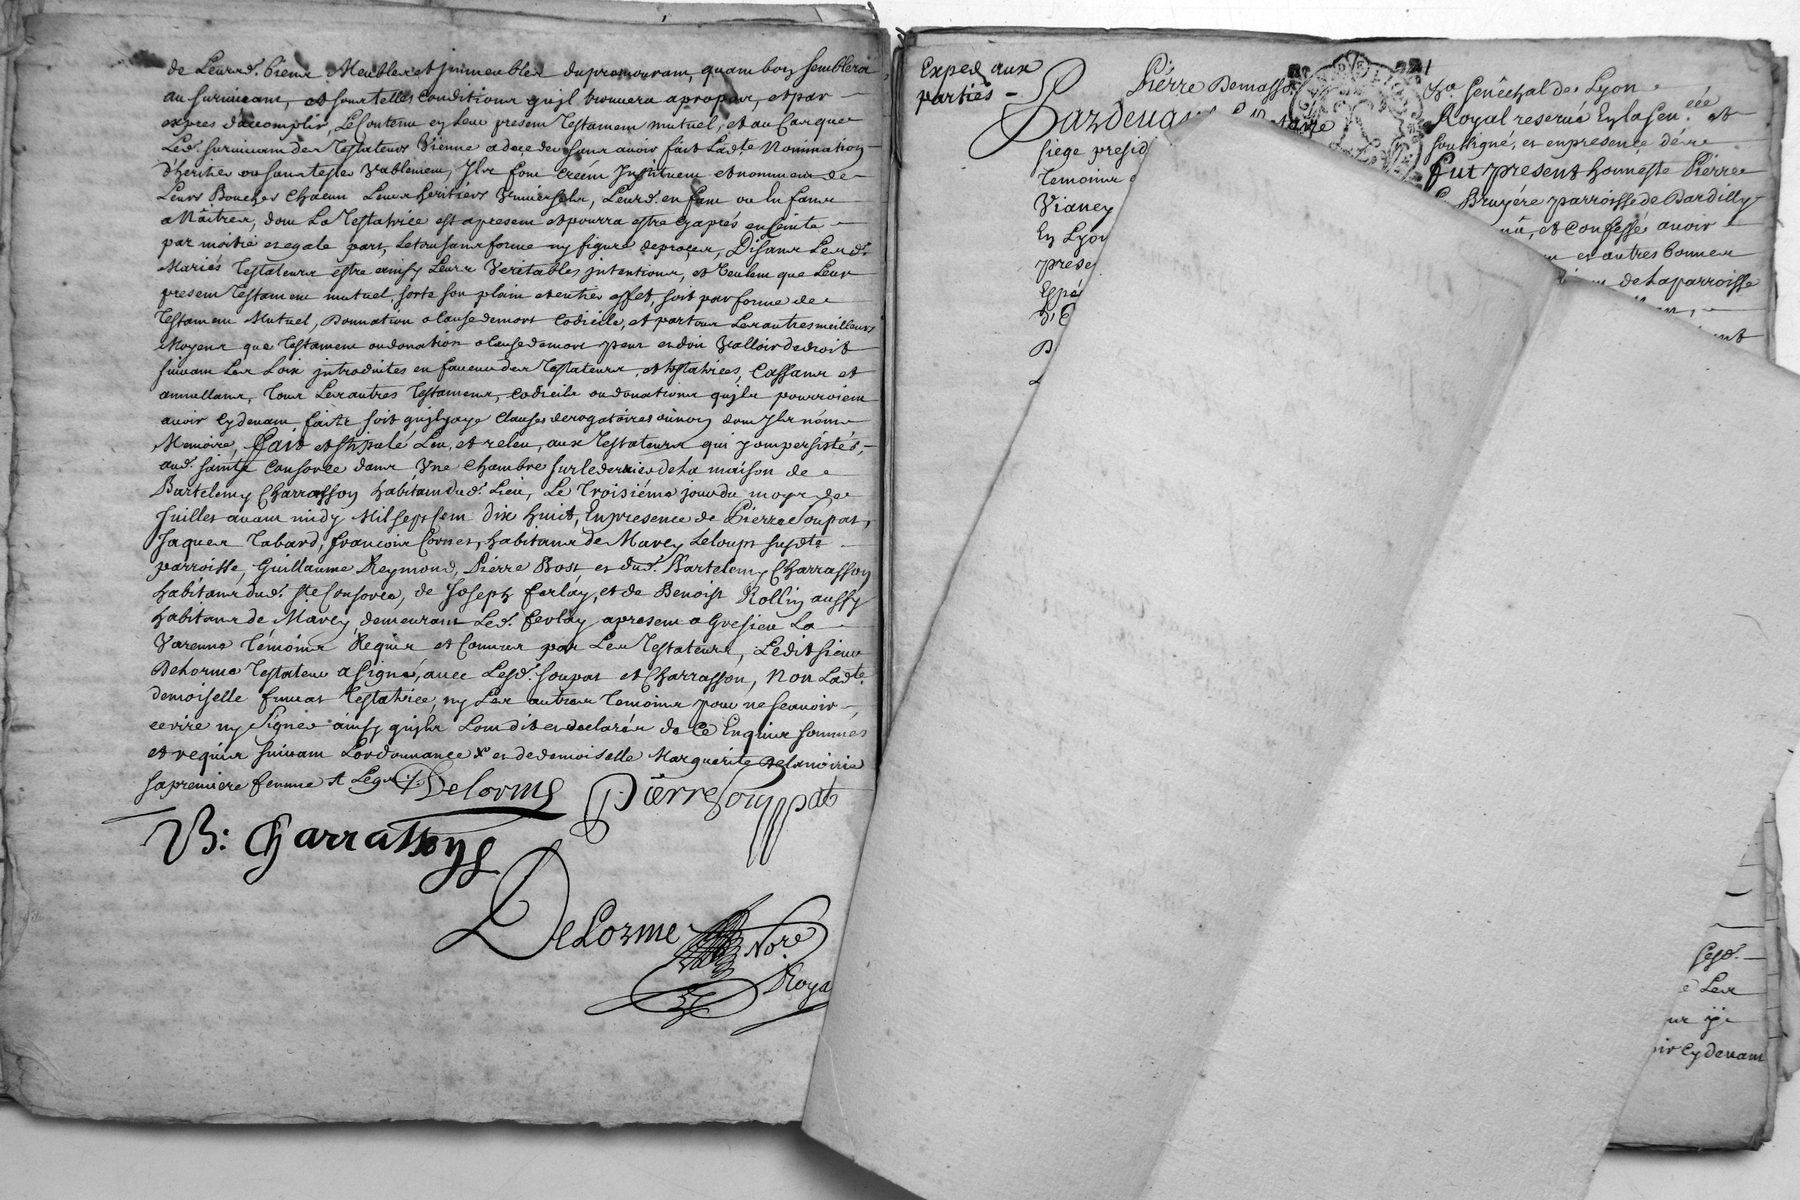 de Leursd. biens Meubles et immeubles du premourant, quam bon semblera
au survivant, et sous telles conditions qu'il trouvera apropos, et par
expres daccomplir, Le Contenu en leur present Testament mutuel, et au Cas que
Led. survivant des Testateurs Vienne a deceder sans avoir fait Ladte Nomination
d'heritier ou sans tester Vablement, Ils font créent Instituent et nomment de
Leurs Bouches Chacun Leurs heritiers Universels, Leursd. enfans ou Enfans
a Naitres, dont La Testatrice est apresent et pourra estre cy après enceinte
par moitié et egale part, Le tout sans forme ny figure de procez, Disans Lesd.
Mariés Testateurs estre ainsy Leurs Veritables intentions, et Veulent que Leur
present Testament mutuel, sorte son plain et entier effet, soit par forme de
Testament Mutuel, Donnation a Cause de mort Codicille, et par tous Les autres meilleurs
Moyens que Testament ou donation a Cause de mort peut et doit Valloir de droit
suivant Les Loix introduites en faveur des Testateurs, et testatrices, Cassans et
annullans, Tous Les autres Testamens, Codicils ou donations qu'ils pourroient
avoir Cy devant, faits soit qu'il y aye Clauses derogatoires ou non dont Ils n'ont
Memoire, Fait et stipulé Leu, et releu, aux Testateurs qui y ont persistés,
aud. sainte Consorce dans Une Chambre sur le derrier de La maison de
Bartelemy Charrasson habitant dud. Lieu, Le Troisiéme jour du moys de
Juillet avant midy Mil sept sent Dix huit, En presence de Pierre Soupat,
Jaques Tabard, francois Cornet, habitans de Marcy Leloups susdte
parroisse, Guillaume Reymond, Pierre Bost et dud. Bartelemy Charrasson
habitans dud. Ste Consorce, de Joseph ferlay, et de Benoist Rollin aussy
habitans de Marcy, demeurant Led. ferlay apresent a Gresieu La
Varenne Témoins Requis et Connus par Les Testateurs, Ledit sieur
Delorme Testateur a signé, avec Lesd. Soupat et Charrasson, Non Ladte
demoiselle Testatrice, ny Les autres Temoins pour ne scavoir
ecrire ny signer ainsy qu'ils L'ont dit et declarés de Ce Enquis sommés
et requis suivant L'ordonnance x et de demoiselle Marguerite
sa premiere femme
Delorme
Pierre Souppat
B: Charrasson
DeLorme Nore
Roya
Exped aux
parties
Pierre Demasso
Par devant
siege presid
Temoins
Vianey
En Lyon
presen
Espé
D'E
Sénéchal de Lyon
Royal reservé En la sen.ée et
soussigné, et en presence des
fut present honneste Pierre
Bruyére parroisse de Dardilly
et Confessé avoir
et autres bonnes
de La parroisse
Lesd.
Les
Cy devant